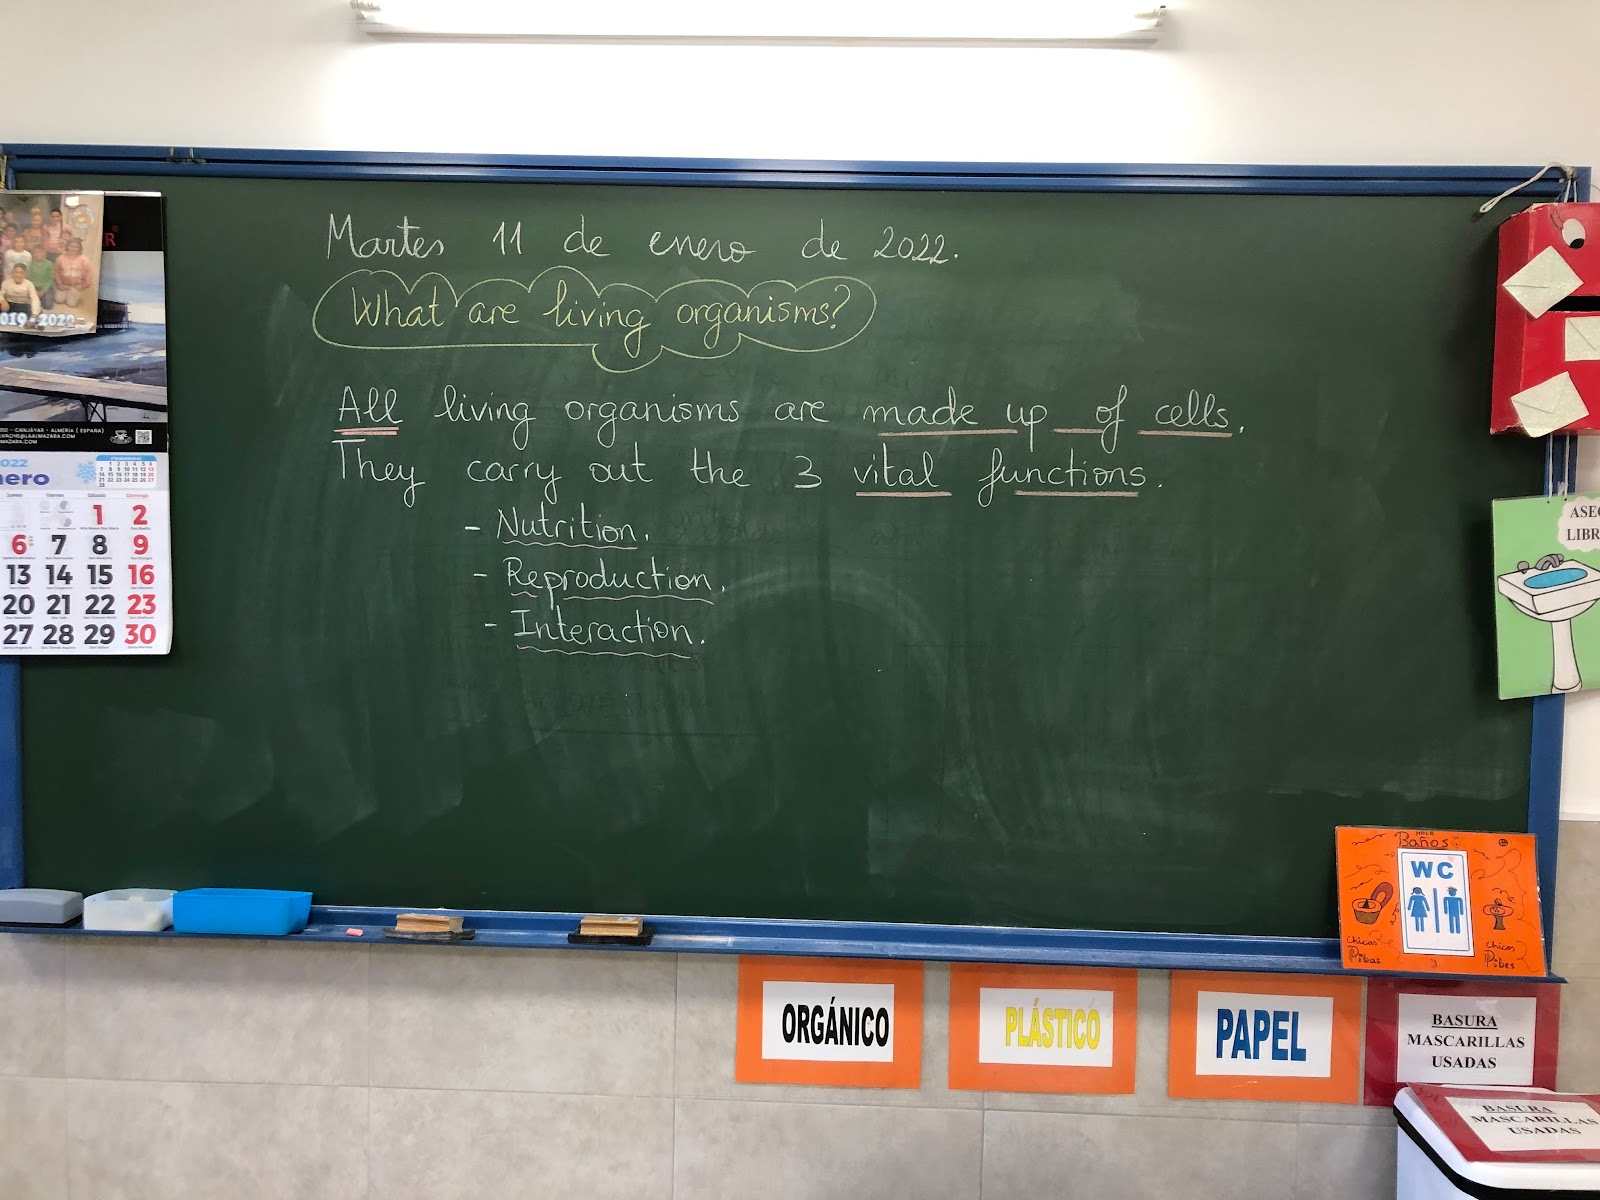 Martes 11 de enero de 2022.
What are living organisms?
All living organisms are made up of cells.
They carry out the 3 vital functions.
- Nutrition.
- Reproduction.
- Interaction.
2019-2020
CANJÁYAR - ALMERÍA (ESPAÑA)
2022
enero
Jueves Viernes Sábado Domingo
1 2
6 7 8 9
13 14 15 16
20 21 22 23
27 28 29 30
Baños
WC
Chicas
Pibas
y
Chicos
Pibes
ORGÁNICO
PLÁSTICO
PAPEL
BASURA
MASCARILLAS
USADAS
BASURA
MASCARILLAS
USADAS